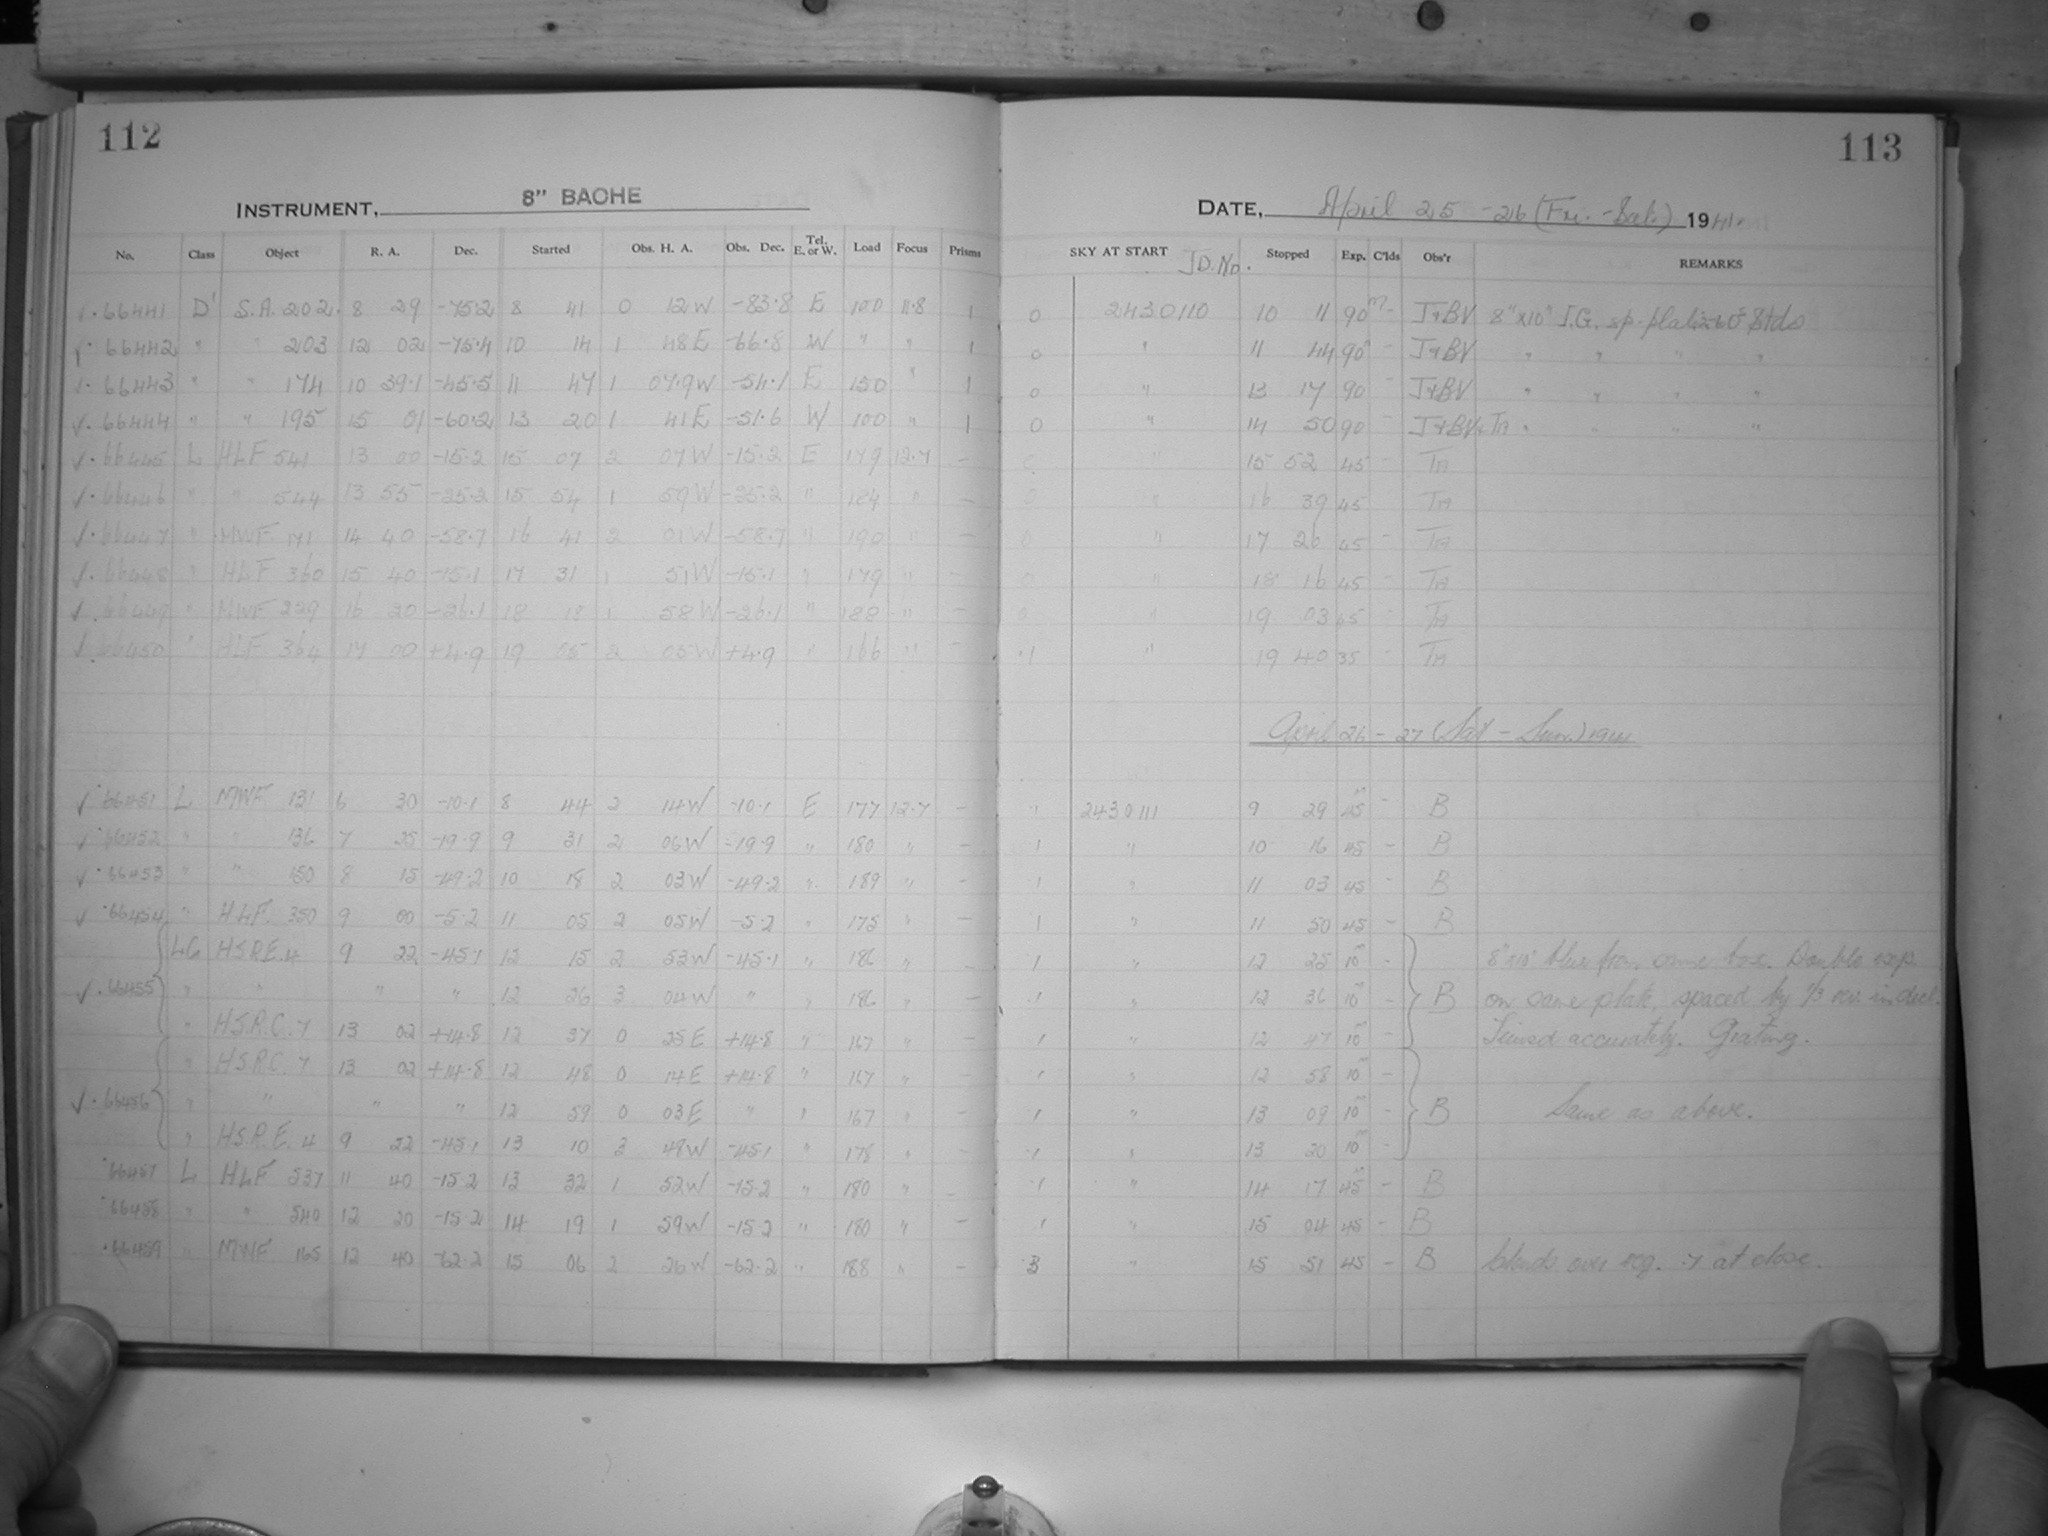 112
113
INSTRUMENT, 8" BACHE
DATE, April 25-26 (Fri.-Sat.) 1941.
No. Class Object R. A. Dec. Started Obs. H. A. Obs. Dec. Tel. E. or W. Load Focus Prisms SKY AT START J.D. No. Stopped Exp. C'lds Obs'r REMARKS
✓. 66441 D' S.A. 202. 8 29 -75.2 8 41 0 12W -83.8 E 100 11.8 1 0 2430110 10 11 90m - J+BV 8"x10" I.G. sp. plate
✓. 66442 " " 203 12 02 -75.4 10 14 1 48E -66.8 W " " 1 0 " 11 44 90m - J+BV " " " "
✓. 66443 " " 174 10 39.1 -45.5 11 47 1 07.9W -54.1 E 150 " 1 0 " 13 17 90 - J+BV " " " "
✓. 66444 " " 195 15 01 -60.2 13 20 1 41E -51.6 W 100 " 1 0 " 14 50 90 - J+BV " " " "
✓. 66445 L HLF 541 13 00 -15.2 15 07 2 07W -15.2 E 179 12.7 - 0 " 15 52 45 -
✓. 66446 " " 544 13 55 -25.2 15 54 1 59W -25.2 " 184 " - 0 " 16 39 45
✓. 66447 " MWF 171 14 40 -58.7 16 41 2 01W -58.7 " 190 " - 0 " 17 26 45 -
✓. 66448 " HLF 360 15 40 -15.1 17 31 1 51W -15.1 " 179 " - 0 " 18 16 45 -
✓. 66449 " MWF 229 16 20 -26.1 18 18 1 58W -26.1 " 188 " - 0 " 19 03 45 -
✓. 66450 " HLF 364 17 00 +4.9 19 05 2 05W +4.9 " 166 " - 1 " 19 40 35 -
April 26-27 (Sat-Sun.) 1941
✓ 66451 L MWF 131 6 30 -10.1 8 44 2 14W -10.1 E 177 12.7 - " 2430111 9 29 45m - B
✓ 66452 " " 136 7 25 -19.9 9 31 2 06W -19.9 " 180 " - 1 " 10 16 45 - B
✓ 66453 " " 150 8 15 -49.2 10 18 2 03W -49.2 " 189 " - 1 " 11 03 45 - B
✓ 66454 " HLF. 350 9 00 -5.2 11 05 2 05W -5.2 " 175 " - 1 " 11 50 45 - B
LG H.S.P.E. 4 9 22 -45.1 12 15 2 53W -45.1 " 186 " - 1 " 12 25 10m - 8"x10" blue from same box. Double exp.
✓. 66455 " " " " 12 26 3 04W " " 186 " - 1 " 12 36 10m - B on same plate, spaced by 1/3 rev. in decl.
" H.S.P.C. 7 13 02 +14.8 12 37 0 25E +14.8 " 167 " - 1 " 12 47 10m - Timed accurately. Grating.
" H.S.P.C. 7 13 02 +14.8 12 48 0 14E +14.8 " 167 " - 1 " 12 58 10m -
✓. 66456 " " " " 12 59 0 03E " " 167 " - 1 " 13 09 10m - B Same as above.
" H.S.P.E. 4 9 22 -45.1 13 10 3 48W -45.1 " 178 " - 1 " 13 20 10m -
66457 L HLF 537 11 40 -15.2 13 32 1 52W -15.2 " 180 " - 1 " 14 17 45m - B
66458 " " 540 12 20 -15.2 14 19 1 59W -15.2 " 180 " - 1 " 15 04 45 - B
66459 " MWF 165 12 40 -62.2 15 06 2 26W -62.2 " 188 " - 3 " 15 51 45 - B clouds over reg. .7 at close.